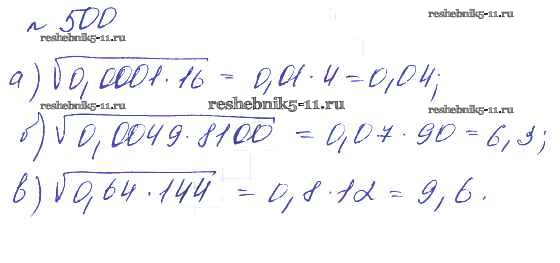 № 500
reshebnik5-11.ru
reshebnik5-11.ru
а) √0,0001·16 = 0,01·4 = 0,04;
reshebnik5-11.ru
reshebnik5-11.ru
б) √0,0049·8100 = 0,07·90 = 6,3;
reshebnik5-11.ru
reshebnik5-11.ru
в) √0,64·144 = 0,8·12 = 9,6.